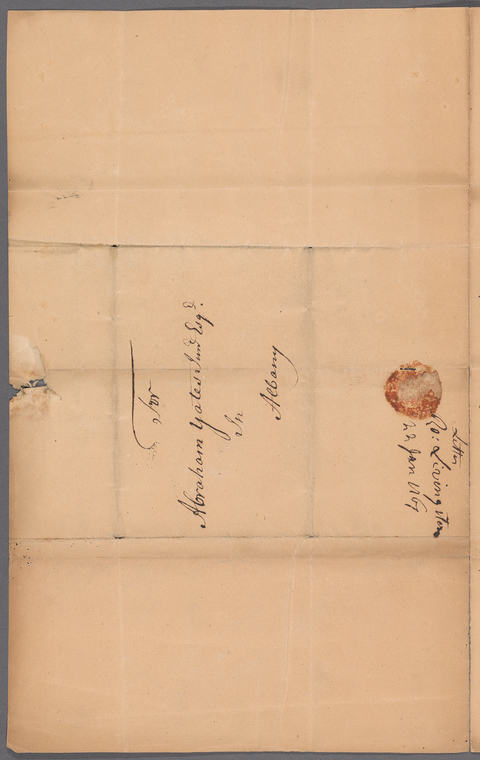 For
Abraham Yates Junr Esqr.
In
Albany
Letter
Ro: Livingston
22 Jan 1761